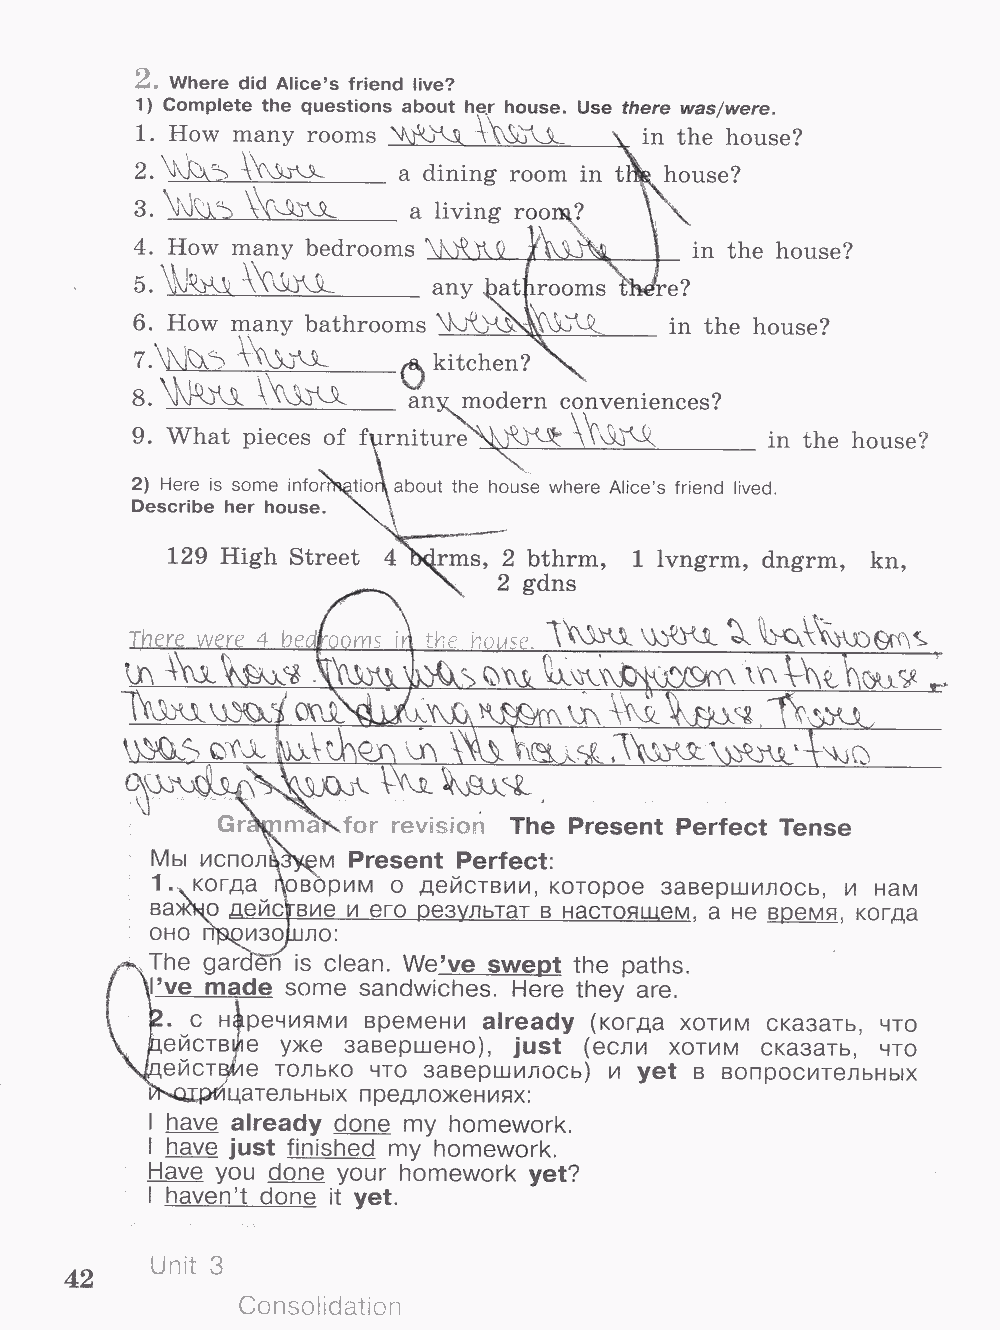 2. Where did Alice's friend live?
1) Complete the questions about her house. Use there was/were.
1. How many rooms were there in the house?
2. Was there a dining room in the house?
3. Was there a living room?
4. How many bedrooms were there in the house?
5. Were there any bathrooms there?
6. How many bathrooms were there in the house?
7. Was there a kitchen?
8. Were there any modern conveniences?
9. What pieces of furniture were there in the house?
2) Here is some information about the house where Alice's friend lived.
Describe her house.
129 High Street 4 bdrms, 2 bthrm, 1 lvngrm, dngrm, kn,
2 gdns
There were 4 bedrooms in the house. There were 2 bathrooms
in the hous. There was one livingroom in the house.
There was one dining room in the hous. There
was one kitchen in the house. There were two
gardens near the house.
Grammar for revision The Present Perfect Tense
Мы используем Present Perfect:
1. когда говорим о действии, которое завершилось, и нам
важно действие и его результат в настоящем, а не время, когда
оно произошло:
The garden is clean. We've swept the paths.
I've made some sandwiches. Here they are.
2. с наречиями времени already (когда хотим сказать, что
действие уже завершено), just (если хотим сказать, что
действие только что завершилось) и yet в вопросительных
и отрицательных предложениях:
I have already done my homework.
I have just finished my homework.
Have you done your homework yet?
I haven't done it yet.
Unit 3
42
Consolidation